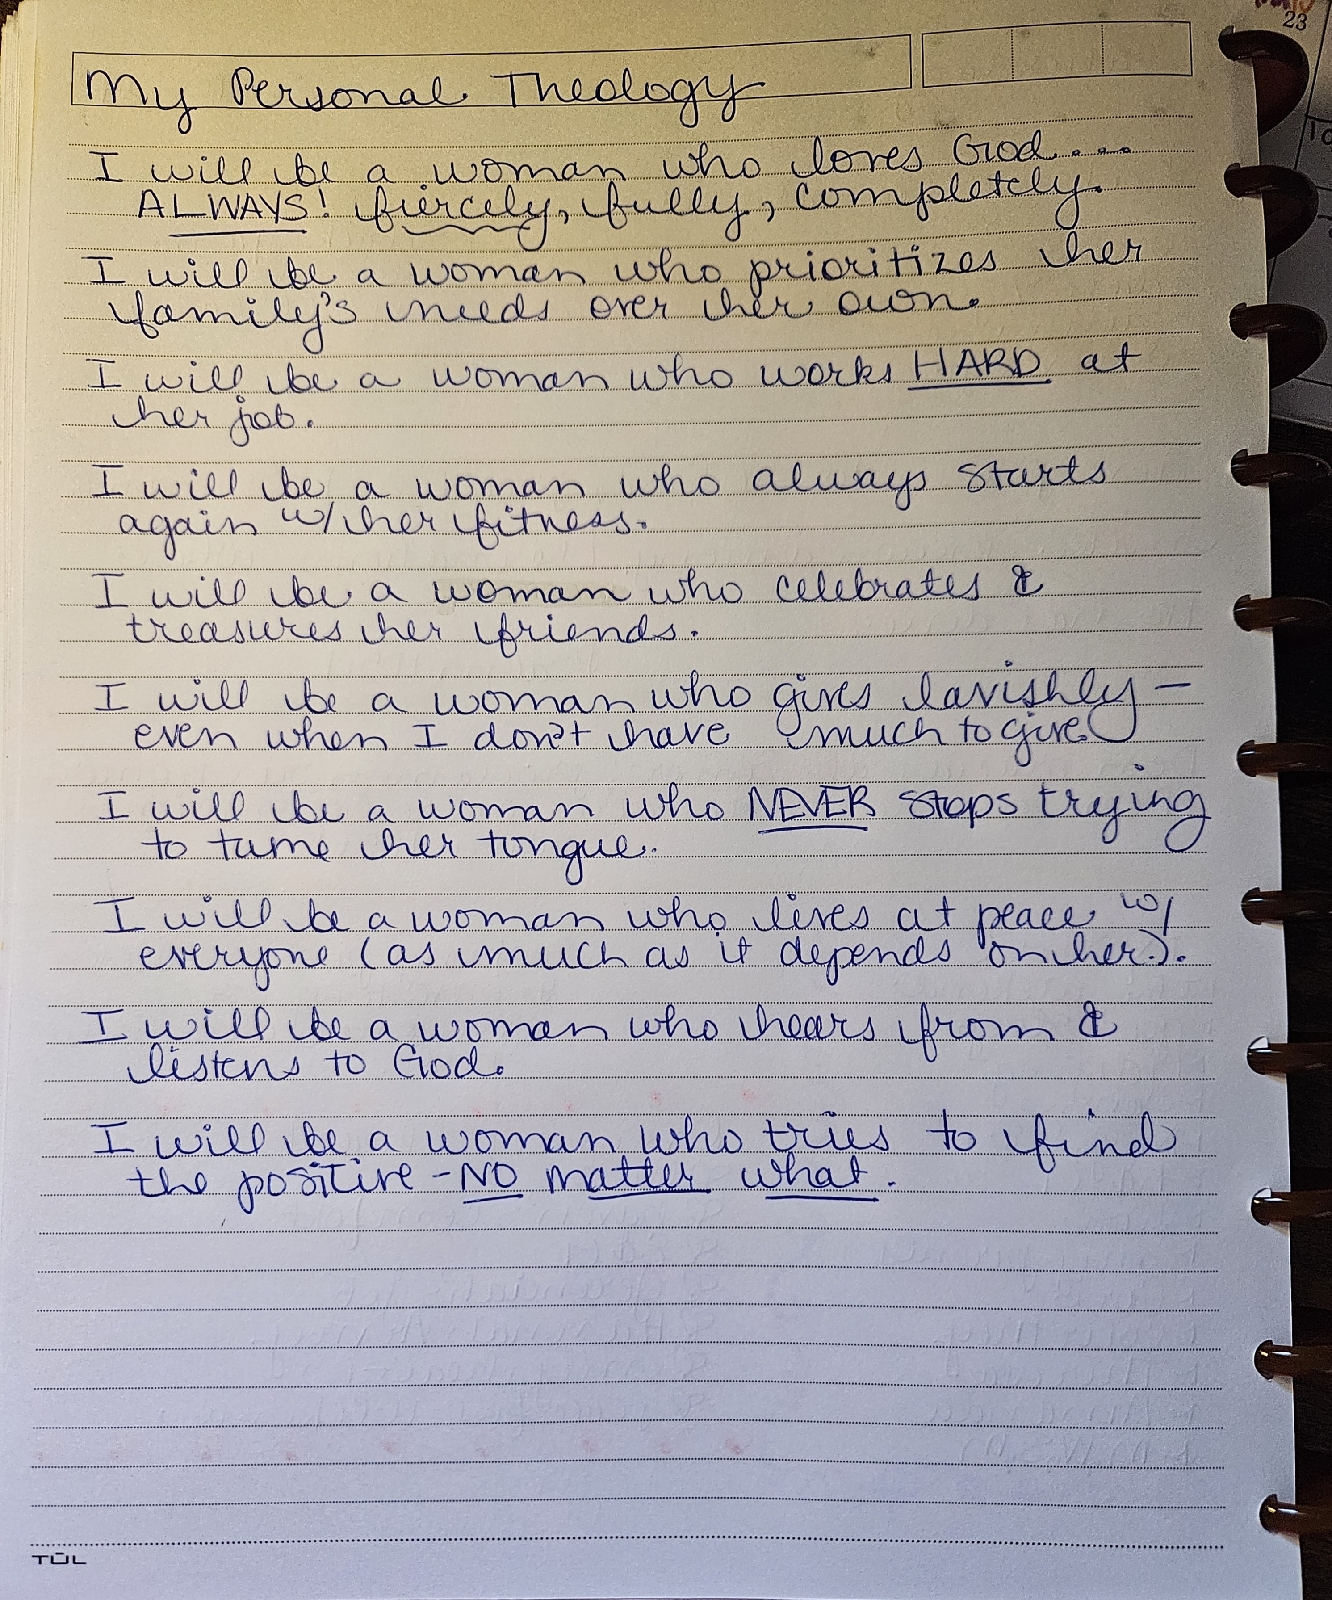 23
My Personal Theology
I will be a woman who loves God....
ALWAYS! fiercely, fully, completely.
I will be a woman who prioritizes her
family's needs over her own.
I will be a woman who works HARD at
her job.
I will be a woman who always starts
again w/ her fitness.
I will be a woman who celebrates &
treasures her friends.
I will be a woman who gives lavishly –
even when I don't have much to give
I will be a woman who NEVER stops trying
to tame her tongue.
I will be a woman who lives at peace w/
everyone (as much as it depends on her).
I will be a woman who hears from &
listens to God.
I will be a woman who tries to find
the positive – NO matter what.
TŪL